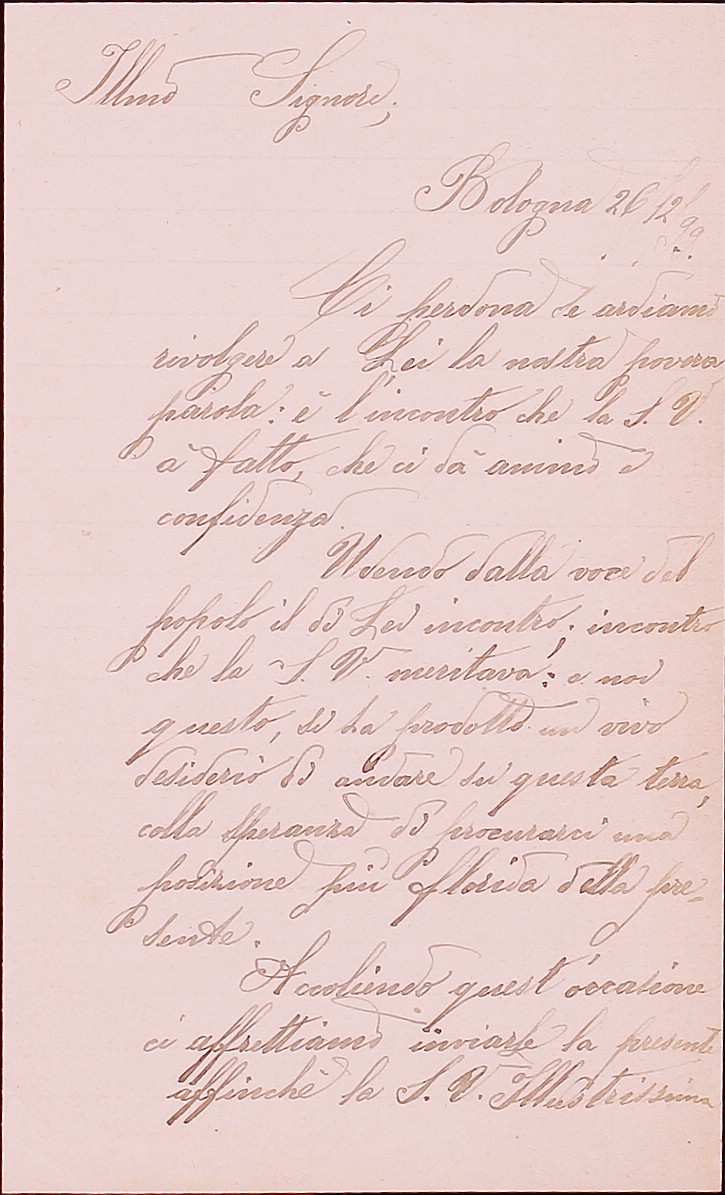 Illmo Signore,
Bologna 26/12 99
Ci perdona se ardiamo
rivolgere a Lei la nostra povera
parola: è l'incontro che la S. V.
à fatto, che ci dà animo e
confidenza.
Udendo dalla voce del
popolo il di Lei incontro: incontro
che la S. V. meritava!: a noi
questo, si ha prodotto un vivo
desiderio di andare su questa terra,
colla speranza di procurarci una
posizione più florida della pre-
sente.
Accoliendo quest'occasione
ci affrettiamo inviarle la presente
affinchè la S. V. Illustrissima